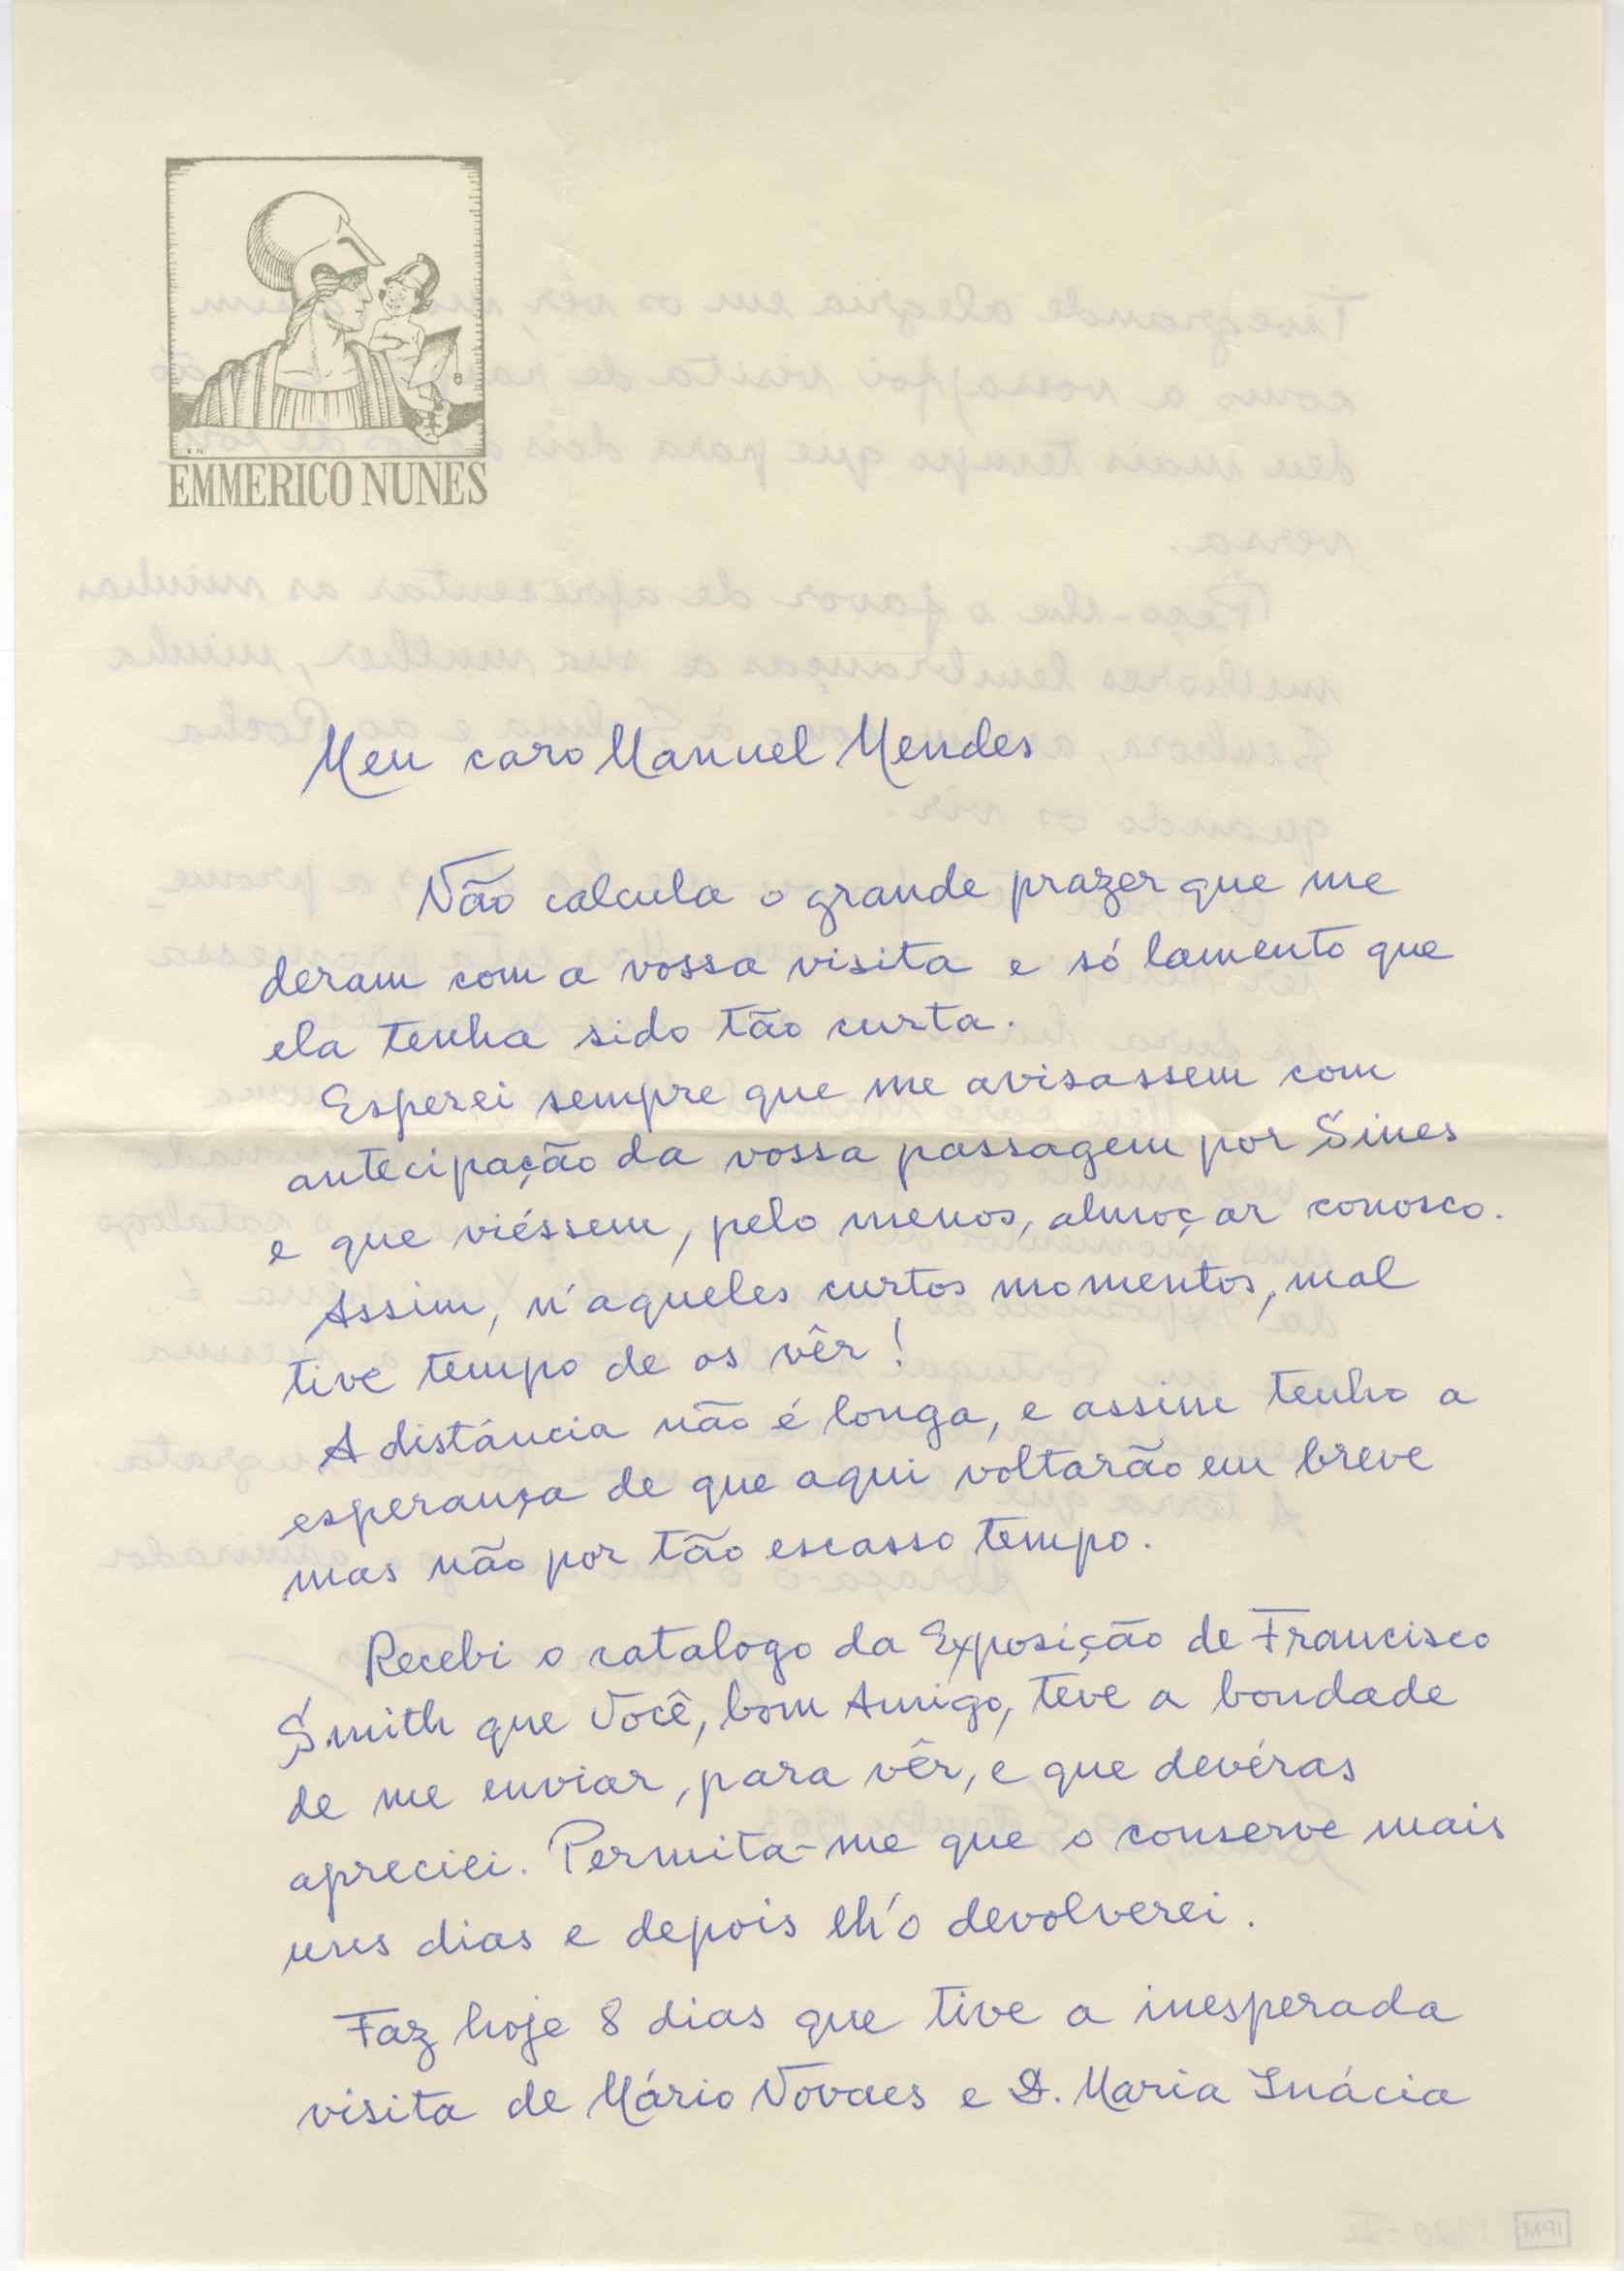 EMMERICO NUNES
Meu caro Manuel Mendes
Não calcula o grande prazer que me
deram com a vossa visita e só lamento que
ela tenha sido tão curta.
Esperei sempre que me avisassem com
antecipação da vossa passagem por Sines
e que viéssem, pelo menos, almoçar conosco.
Assim, n'aqueles curtos momentos, mal
tive tempo de os vêr!
A distáncia não é longa, e assim tenho a
esperança de que aqui voltarão em breve
mas não por tão escasso tempo.
Recebi o catalogo da Exposição de Francisco
Smith que Você, bom Amigo, teve a bondade
de me enviar, para vêr, e que devéras
apreciei. Permita-me que o conserve mais
uns dias e depois lh'o devolverei.
Faz hoje 8 dias que tive a inesperada
visita de Mário Novaes e D. Maria Inácia